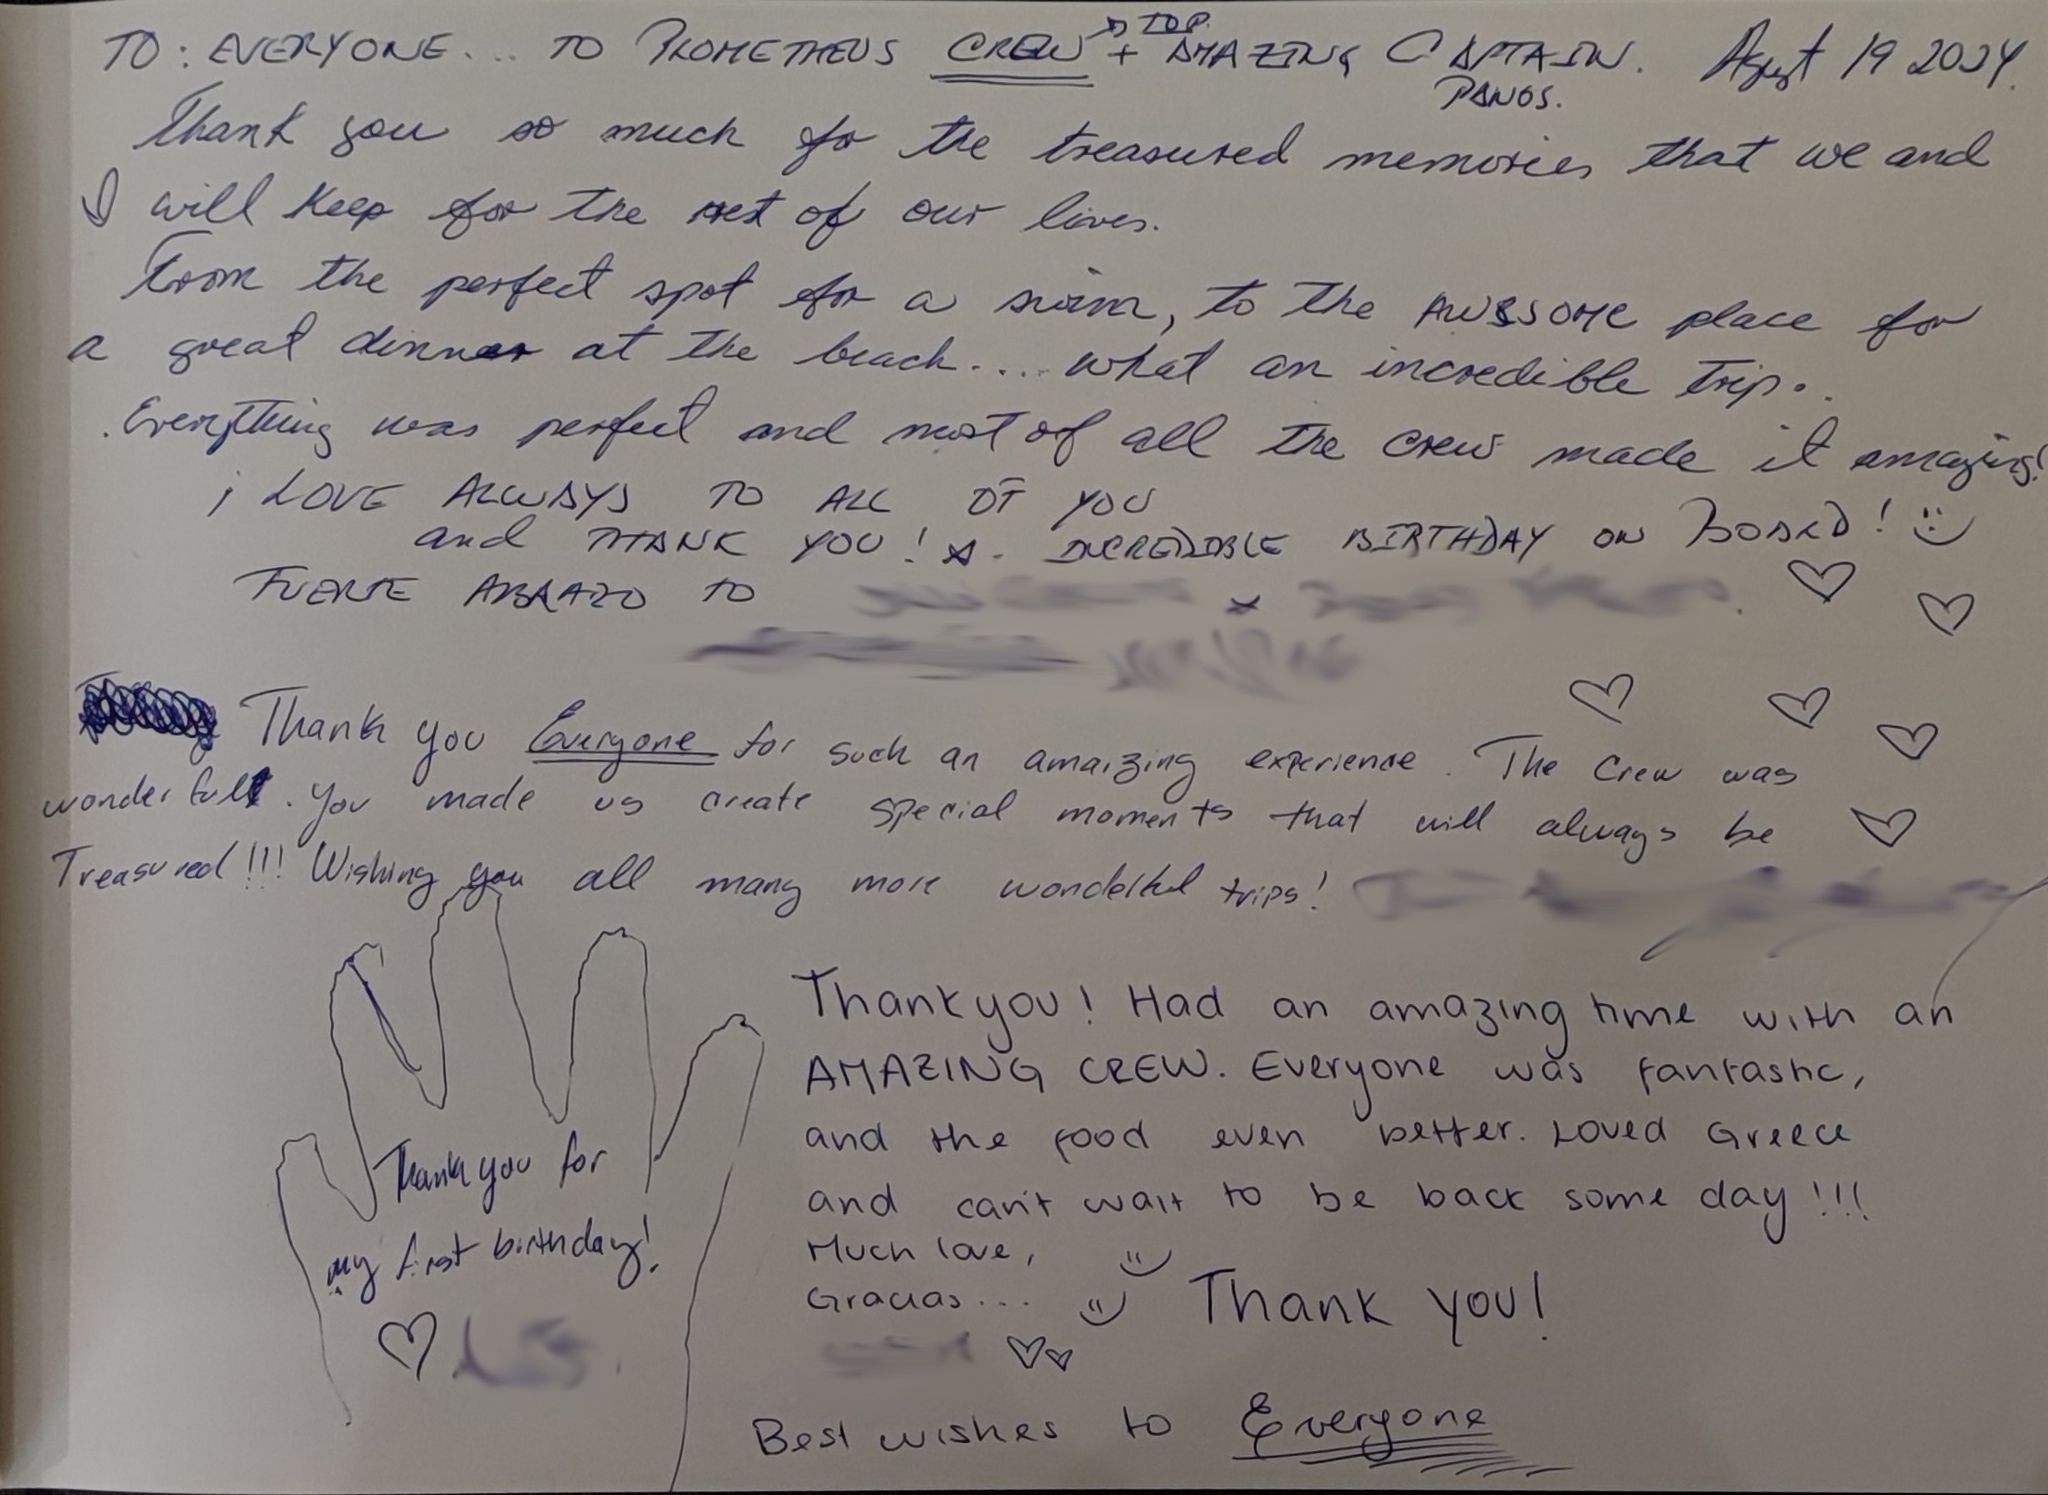 TO: EVERYONE... TO PROMETHEUS CREW → TOP. + AMAZING CAPTAIN. August 19 2024.
PANOS.
Thank you so much for the treasured memories that we and
I will keep for the rest of our lives.
From the perfect spot for a swim, to the AWESOME place for
a great dinner at the beach.... what an incredible trip..
Everything was perfect and most of all the crew made it amazing!
¡ LOVE ALWAYS TO ALL OF YOU
and THANK YOU! INCREDIBLE BIRTHDAY ON BOARD! :)
FUERTE ABRAZO TO
Thank you Everyone for such an amaizing experience. The Crew was
wonderfull. You made us create special moments that will always be
Treasured!!! Wishing you all many more wonderful trips!
Thank you for
my first birthday!
Thank you! Had an amazing time with an
AMAZING CREW. Everyone was fantastic,
and the food even better. Loved Greece
and can't wait to be back some day!!!
Much love,
Gracias...
Thank you!
Best wishes to Everyone